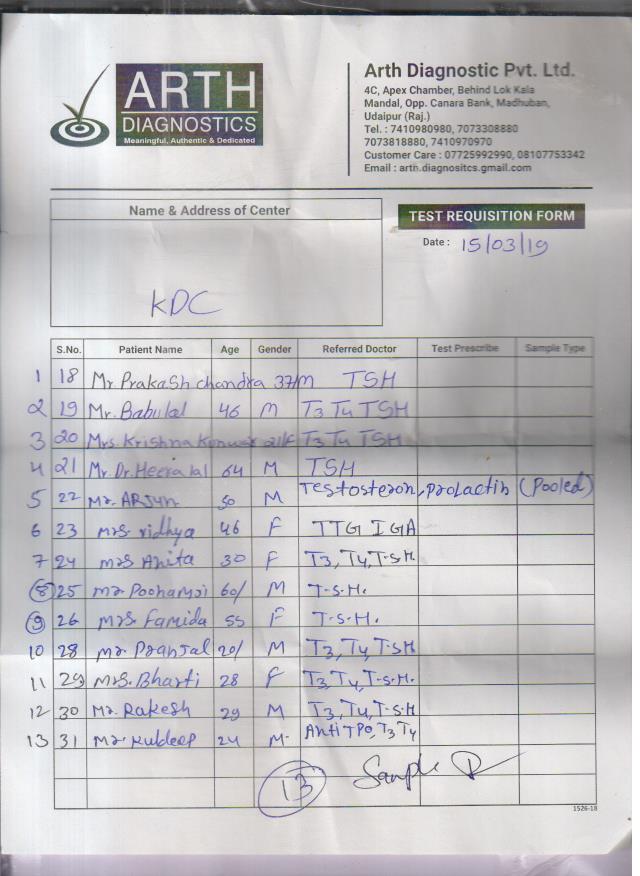 ARTH
DIAGNOSTICS
Meaningful, Authentic & Dedicated
Arth Diagnostic Pvt. Ltd.
4C, Apex Chamber, Behind Lok Kala
Mandal, Opp. Canara Bank, Madhuban,
Udaipur (Raj.)
Tel. : 7410980980, 7073308880
7073818880, 7410970970
Customer Care : 07725992990, 08107753342
Email : arth.diagnositcs.gmail.com
Name & Address of Center
KDC
TEST REQUISITION FORM
Date : 15/03/19
S.No. Patient Name Age Gender Referred Doctor Test Prescribe Sample Type
1 18 Mr. Prakash chandra 37/M TSH
2 19 Mr. Babulal 46 M T3 T4 TSH
3 20 Mrs. Krishna Kunwar 21/F T3 T4 TSH
4 21 Mr. Dr. Heeralal 64 M TSH
5 22 Mr. ARJUN 50 M Testosteron, Prolactin (Pooled)
6 23 Mrs. Vidhya 46 F TTG IGA
7 24 Mrs Anita 30 F T3, T4, T.S.H.
8 25 Mr. 60/ M T.S.H.
9 26 Mrs. Famida 55 F T.S.H.
10 28 Mr. Pranjal 20/ M T3, T4, T.S.H
11 29 Mrs. Bharti 28 F T3, T4, T.S.H.
12 30 Mr. Rakesh 29 M T3, T4, T.S.H
13 31 Mr. Kuldeep 24 M. Anti TPO, T3 T4
13 Sample R
1526-18